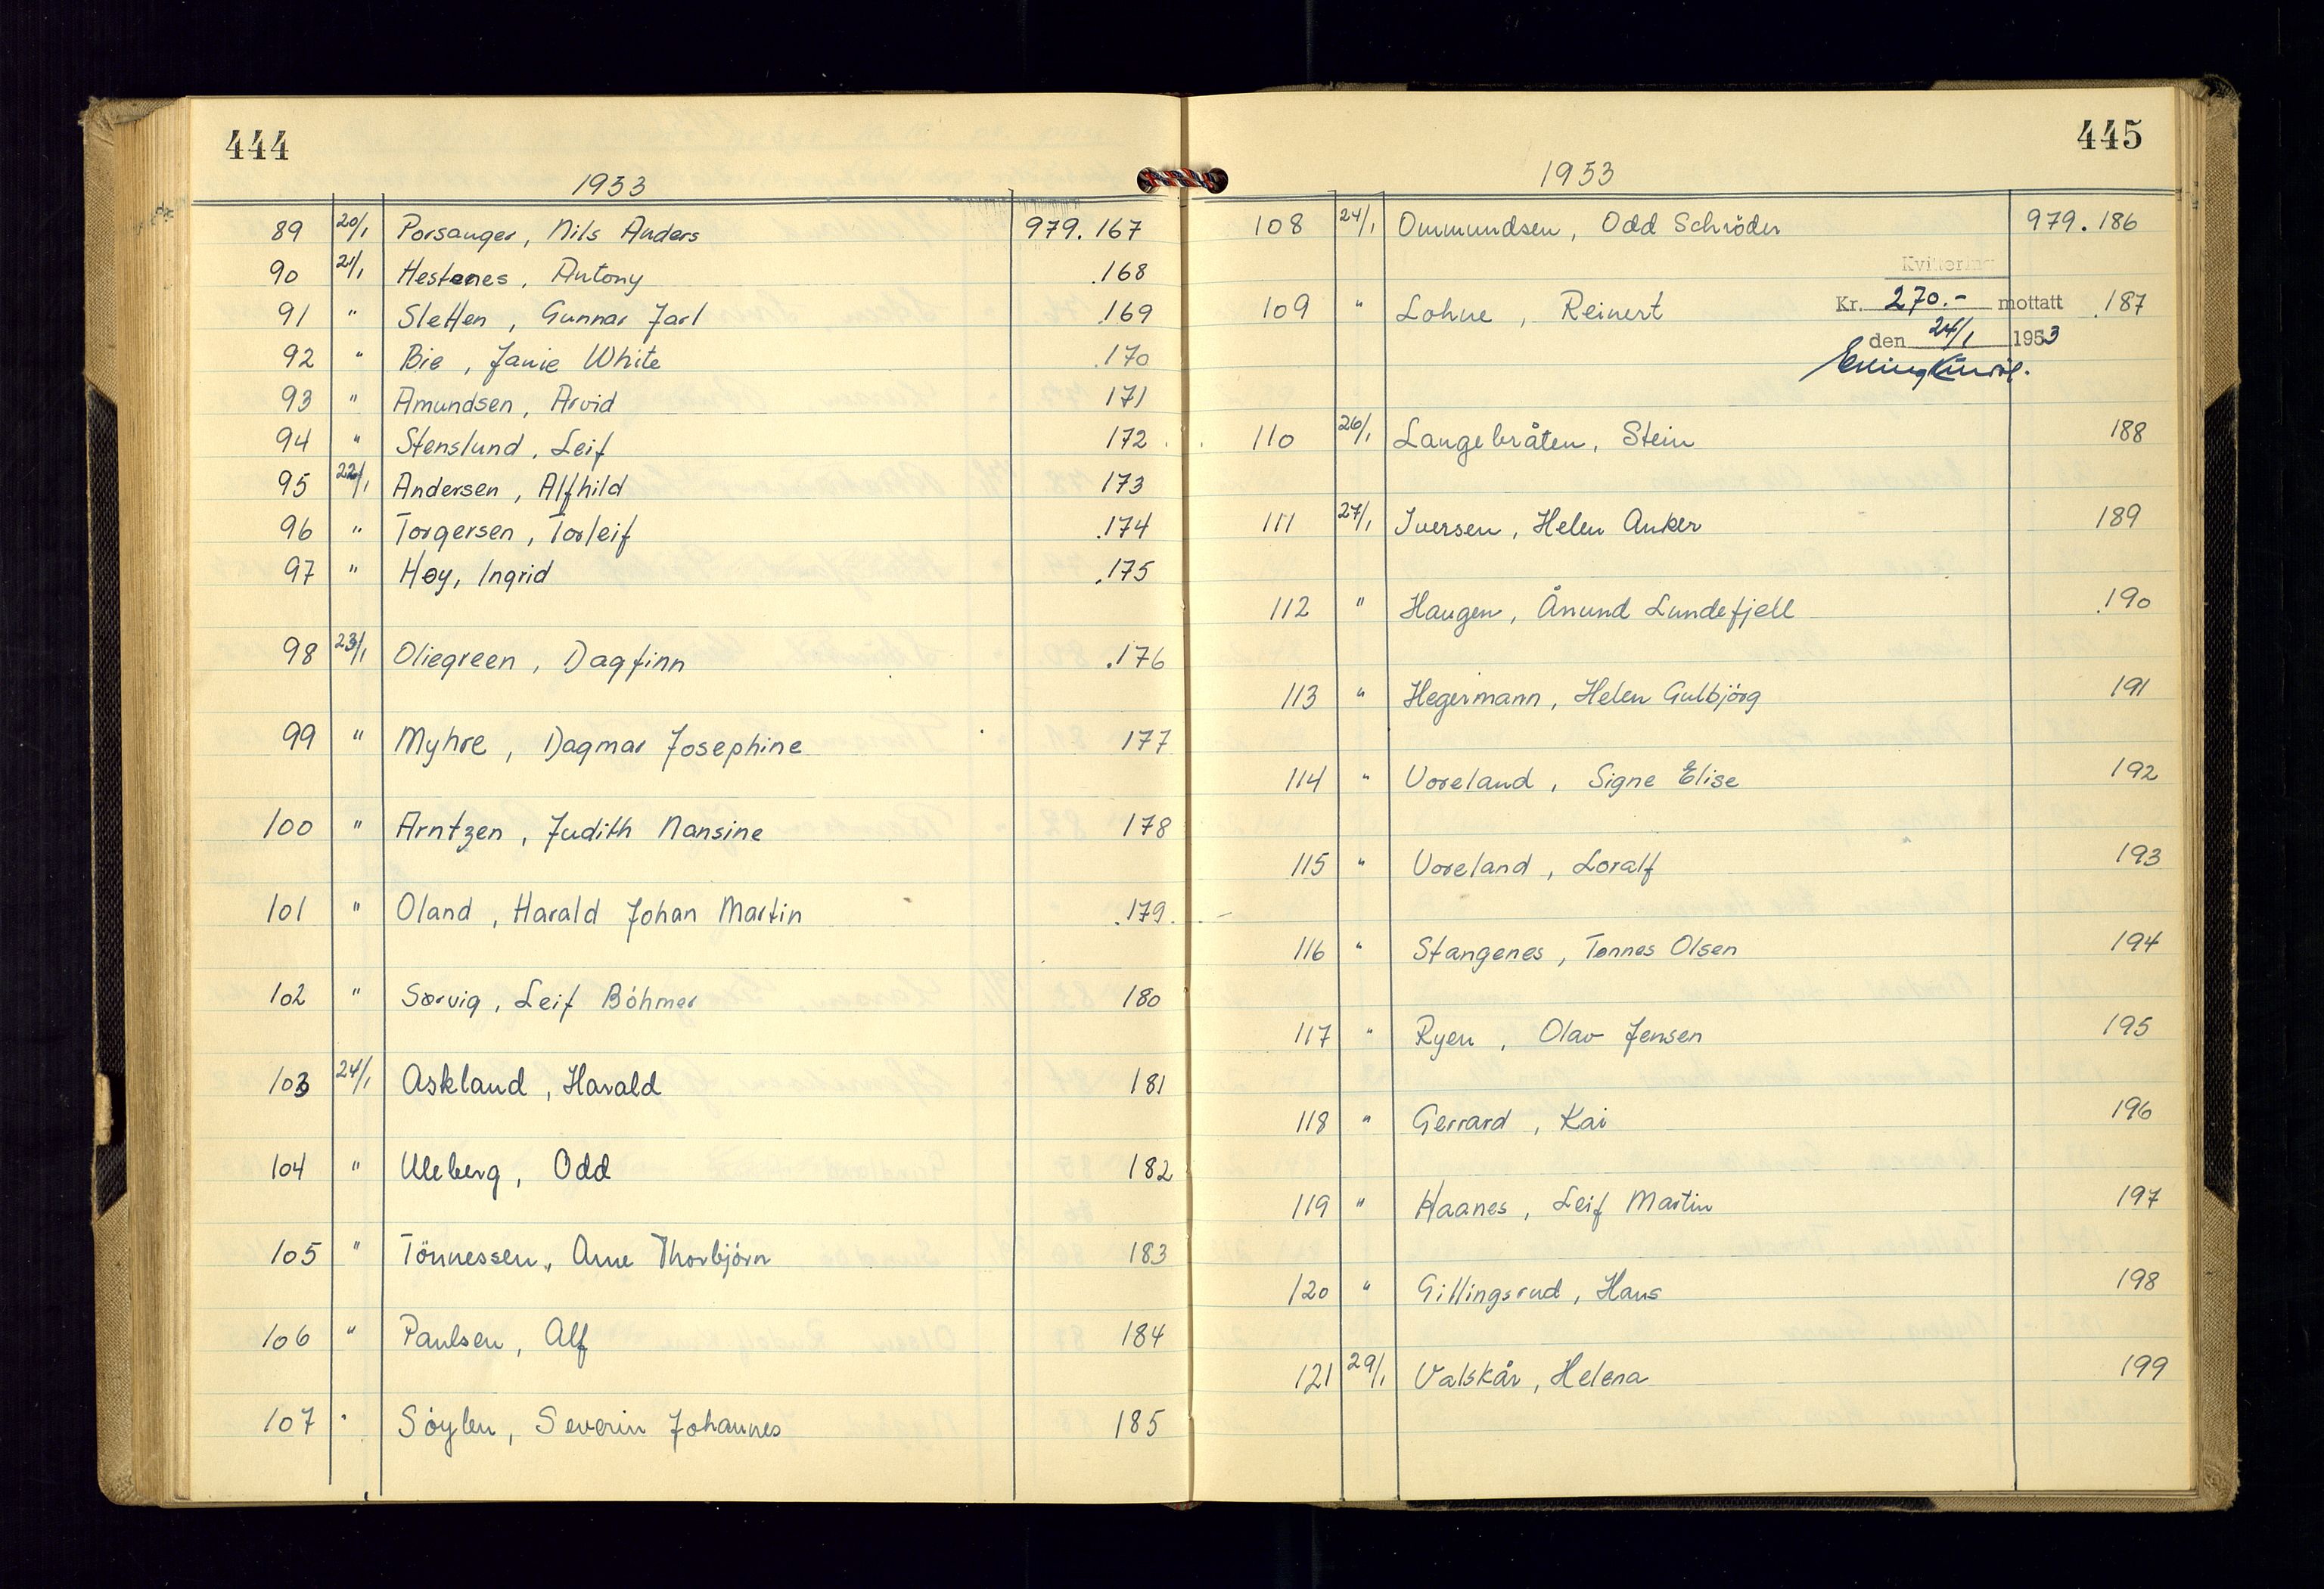 444
1953
89 20/1 Porsanger, Nils Anders 979.167
90 21/1 Hestenes, Antony .168
91 " Sletten, Gunnar Jarl .169
92 " Bie, Janie White .170
93 " Amundsen, Arvid 171
94 " Stenslund, Leif 172
95 22/1 Andersen, Alfhild 173
96 " Torgersen, Torleif .174
97 " Høy, Ingrid .175
98 23/1 Oliegreen, Dagfinn .176
99 " Myhre, Dagmar Josephine 177
100 " Arntzen, Judith Nansine 178
101 " Oland, Harald Johan Martin .179
102 " Sørvig, Leif Böhmer 180
103 24/1 Askland, Harald 181
104 " Uleberg, Odd 182
105 " Tönnessen, Arne Thorbjörn 183
106 " Paulsen, Alf 184
107 " Söylen, Severin Johannes 185
445
1953
108 24/1 Ommundsen, Odd Schröder 979.186
Kvittering
109 " Lohne, Reinert Kr. 270.- mottatt .187
den 24/1 1953
110 26/1 Langebråten, Stein 188
111 27/1 Iversen, Helen Anker 189
112 " Haugen, Ånund Lundefjell .190
113 " Hegermann, Helen Gulbjörg 191
114 " Voreland, Signe Elise 192
115 " Voreland, Loralf 193
116 " Stangenes, Tønnes Olsen 194
117 " Ryen, Olav Jensen 195
118 " Gerrard, Kai 196
119 " Haanes, Leif Martin 197
120 " Gillingsrud, Hans 198
121 29/1 Valskår, Helena 199